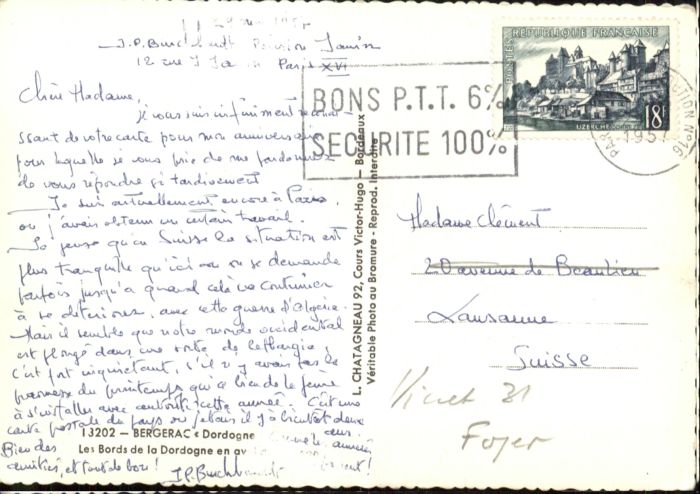 J.P. Burckhardt Pension Jamin
12 rue Paris XVI
Chère Madame,
je vous suis infiniment reconnais-
sant de votre carte pour mon anniversaire
pour laquelle je vous prie de me pardonner
de vous répondre si tardivement
Je suis actuellement encore à Paris,
où j'avais obtenu un certain travail.
Je pense qu'en Suisse la situation est
plus tranquille qu'ici où on se demande
parfois jusqu'à quand cela va continuer
à se détériorer, avec cette guerre d'Algérie.
Mais il semble que notre monde occidental
est plongé dans une sorte de léthargie,
c'est fort inquiétant, s'il n'y avait pas la
promesse du printemps qui a bien de la peine
à s'installer avec autorité cette année. C'est une
carte postale du pays où j'étais il y a bientôt deux
ans.
Bien des
amitiés, et tout de bon! J.P. Burckhardt
13202 — BERGERAC « Dordogne
Les Bords de la Dordogne en av
L. CHATAGNEAU 92, Cours Victor-Hugo — Bordeaux
Véritable Photo au Bromure - Reprod. Interdite
BONS P.T.T. 6%
SECURITE 100%
POSTES
RÉPUBLIQUE FRANÇAISE
UZERCHE
18F
Madame Clément
20 avenue de Beaulieu
Lausanne
Suisse
Vinet 31
Foyer